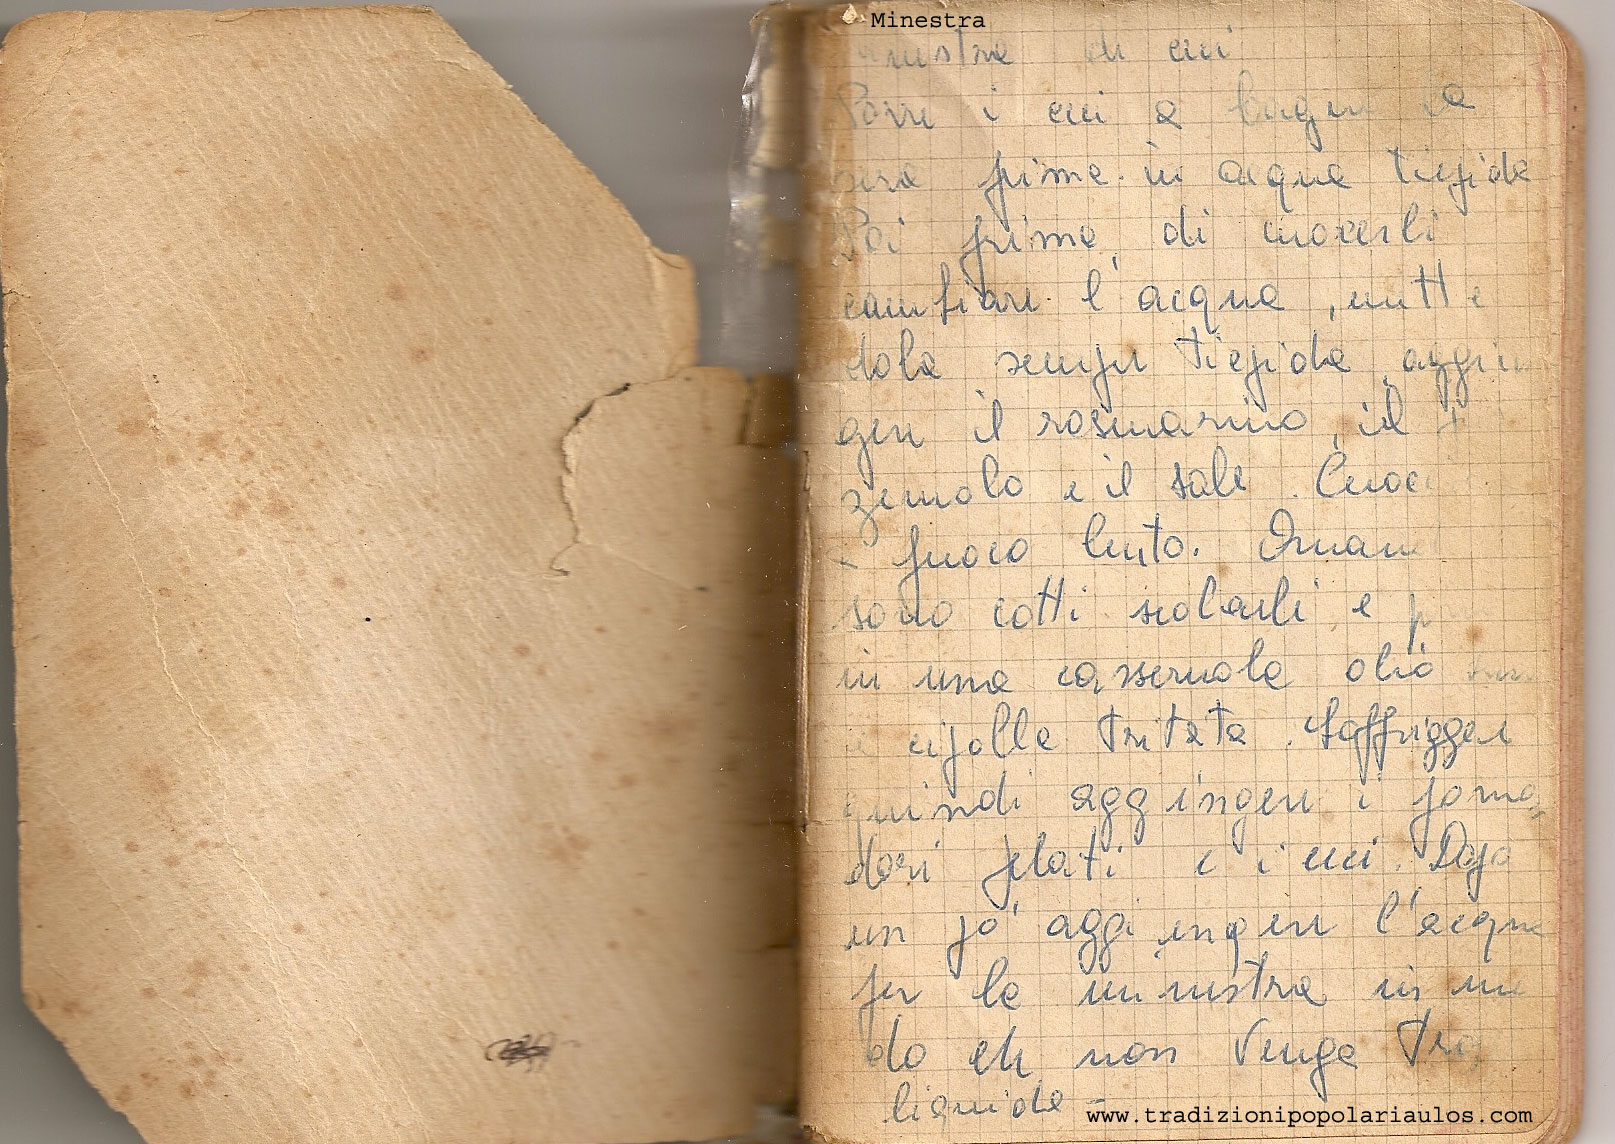 Minestra
di ceci
Porre i ceci a bagno la
sera prima in acqua tiepida
Poi prima di cuocerli
cambiare l'acqua, mette
dola sempre tiepida, aggiun
gere il rosmarino, il
zemolo e il sale. Cuoce
a fuoco lento. Quan
sono cotti scolarli e
in una casseruola olio
cipolla tritata. Soffriggere
quindi aggiungere i pomo=
dori pelati e i ceci. Dopo
un po' aggiungere l'acqua
per la minestra in mo
do che non venga
liquida -
www.tradizionipopolariaulos.com